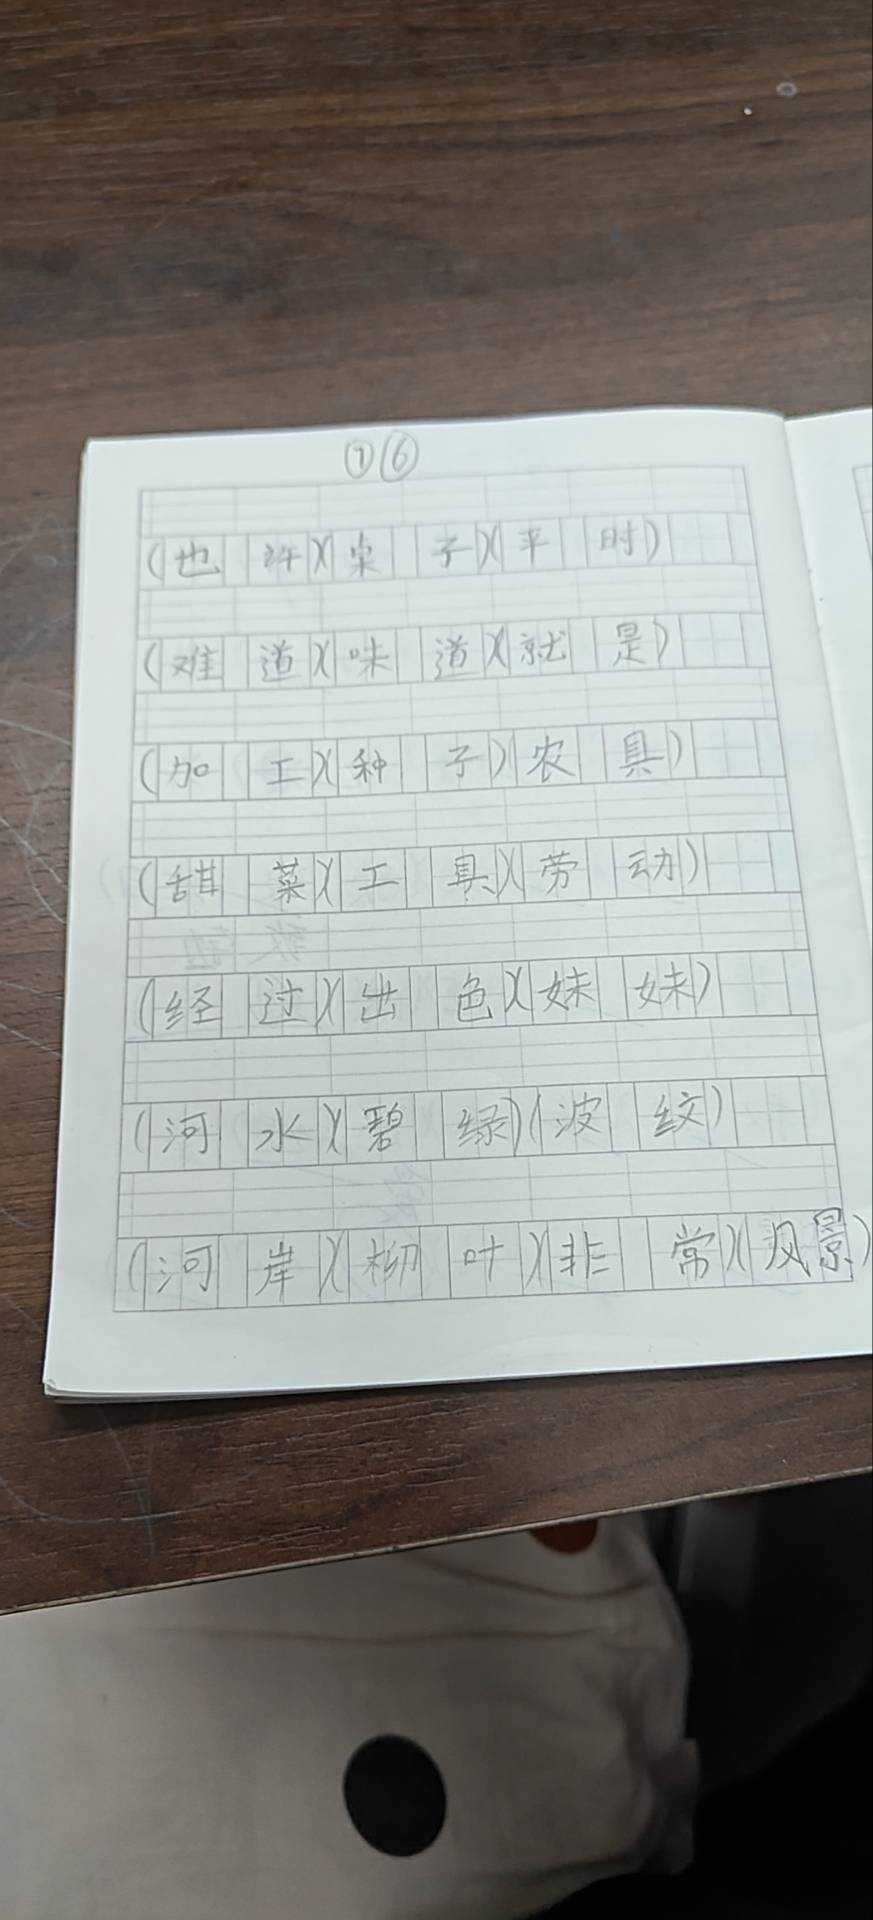 ①⑥
(也许)(桌子)(平时)
(难道)(味道)(就是)
(加工)(种子)(农具)
(甜菜)(工具)(劳动)
(经过)(出色)(妹妹)
(河水)(碧绿)(波纹)
(河岸)(柳叶)(非常)(风景)